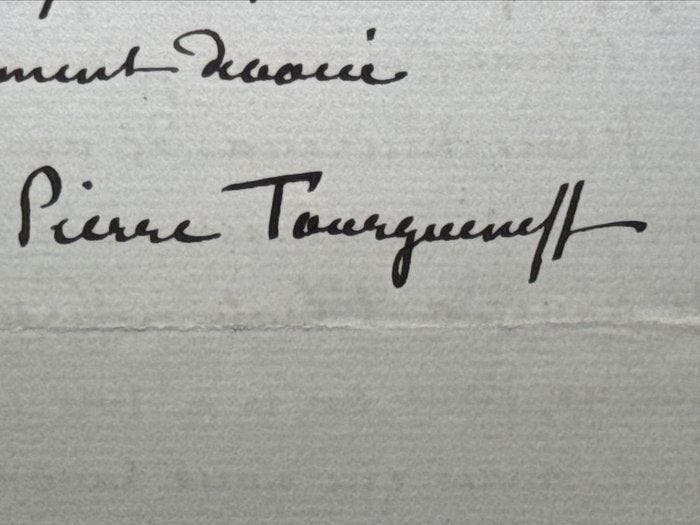 ment dévoué
Pierre Tourgueneff